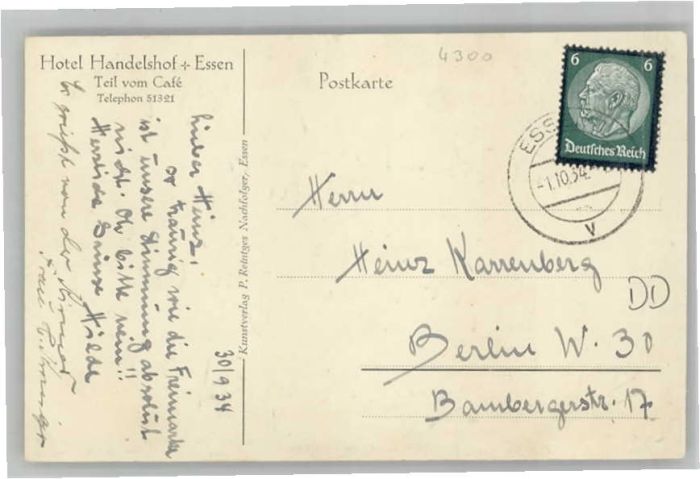 Hotel Handelshof + Essen
Teil vom Café
Telephon 51321
Postkarte
4300
6 6
Deutsches Reich
ESS
-1.10.34.
V
Herrn
Heinz Karrenberg
Berlin W. 30
Bambergerstr. 17
DD
30/9 34
Lieber Heinz,
so traurig wie die Freimarke
ist unsere Stimmung absolut
nicht. Oh bitte nein!!
Herzliche Grüsse Hilde
Es grüßt von der
Frau
Kunstverlag P. Reintges Nachfolger, Essen